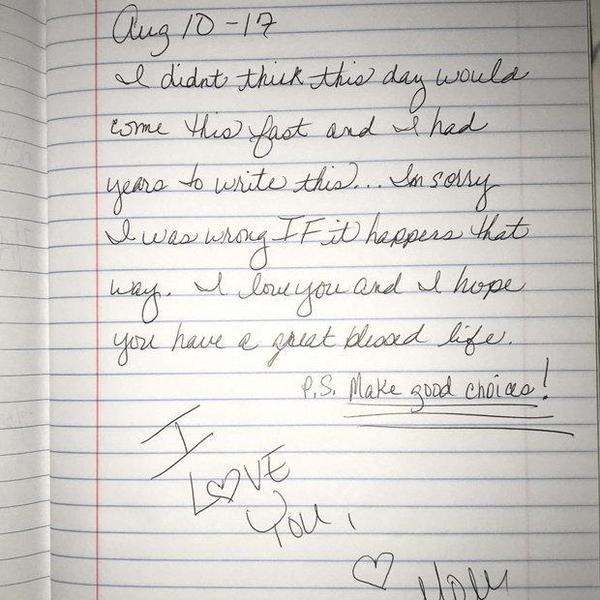 Aug 10-17
I didnt think this day would
come this fast and I had
years to write this... Im sorry
I was wrong IF it happens that
way. I love you and I hope
you have a great blessed life.
P.S. Make good choices!
I
LOVE
You,
Mom